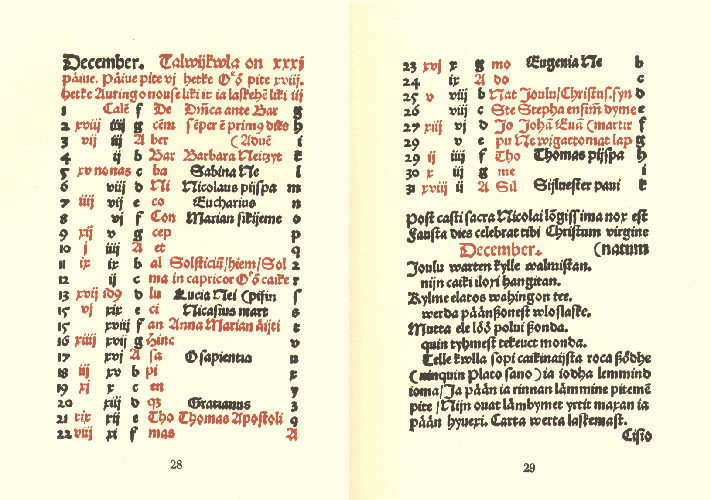 December. Talwikwla on xxxj
päiue. Päiue pite vj hetke Ö ö pite xviij.
hetke Auringo nouse liki ix ia laskehē liki iij
1 Calē f De Dñica ante Bar g
2 xviij iiij g cēm sēper ē prim9 dies h
3 vij iij A ber (Aduē i
4 ij b Bar Barbara Neitzyt k
5 xv nonas c ba Sabina Ne l
6 viij d Ni Nicolaus pijspa m
7 iiij vij e co Eucharius n
8 vj f Con Marian sikijeme o
9 xij v g cep p
10 j iiij A et q
11 ix ix b al Solsticiū/hiem/Sol 2
12 ij c ma in capricor Ö ö caike r
13 xvij id9 d lu Lucia Nei (pisin s
15 vj xix e ci Nicasius mart s
15 xviij f an Anna Marian äijti t
16 xiiij xvij g hinc v
17 xvj A sa O sapientia u
18 iij xv b pi x
19 xj x c en y
20 xiij d q3 Gratianus 3
21 xix xij e Tho Thomas Apostoli 9
22 viij xj f mas A
28
23 xvj x g mo Eugenia Ne b
24 ix A do c
25 v viij b Nat Joulu/Christus.syn d
26 vij c Ste Stepha ensim̄ dyme e
27 xiij vj d Jo Johā Euā (martir f
29 v e pu Ne wigattomat lap g
29 ij iiij f Tho Thomas pijspa h
30 x iij g me i
31 xviij ij A Sil Sijluester paui k
Post casti sacra Nicolai lōgissima nox est
Fausta dies celebrat tibi Christum virgine
December. (natum
Joulu warten kylle walmistan.
nijn caiki ilori hangitan.
Kylme elatos wahingon tee.
werda päänßonest wloslaske.
Mutta ele löö polui ßonda.
quin tyhmest tekeuct monda.
Telle kwlla sopi caikinaijsta roca ßödhe
(uinquin Plato sano) ia iodha lemmind
ioma/Ja pään ia rinnan lämmine pitemē
pite/Nijn ouat lämbymet yrtit maxan ia
pään hyuexi. Carta werta laskemast.
Cisio
29